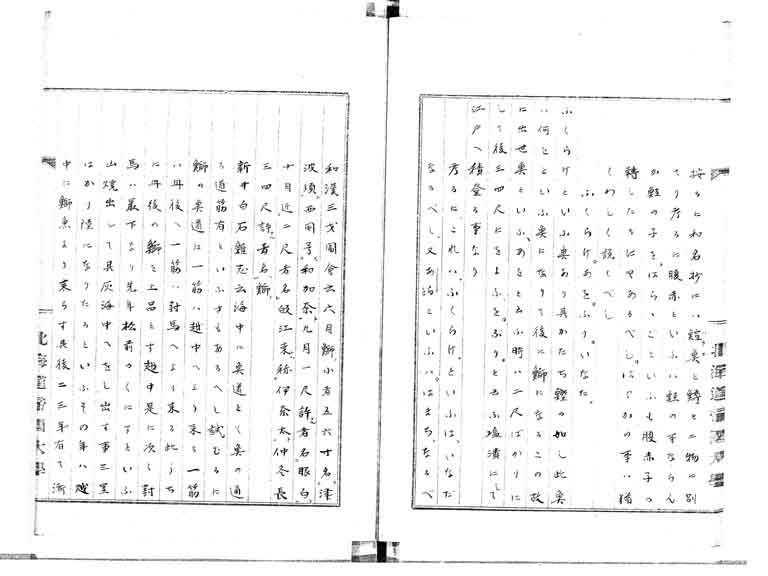 按るに和名抄にハ鮏奥と鱒と二物に別
てり考るに腹赤といふハ鮏の事ならん
か鮏の子をはらゝごといふも腹赤子の
轉したるにやあるべし、はらかの事ハ猶
くわしく說くべし
ふくらけ。あを。ぶり。いなた
ふくらけといふ奥あり其かたち鰹の如し此奥
ハ何とといふ奥になりて後に鰤になるこの故
に出世奥といふ、あをと云ふ時ハ二尺ばかりに
して後三四尺にをよふを、ぶりと云ふ塩漬にして
江戸へ積登る事なり
考るに、これハ、ふくらけといふは、いなだ
なるべし、又あをといふハ、はまちなるべ
和漢三才圖會云六月鰤小者五六寸名津
波須西國号和加奈九月一尺許者名眼白
十月近二尺者名 江東称伊奈太仲冬長
三四尺許者名鰤
新井白石雜志云海中に奥道とて奥の通
る道筋有といふ方もあるへし試むるに
鰤の奥道に一筋ハ越中へより来る一筋
ハ丹後へ一筋ハ対馬へより来る此うち
に丹後の鰤を上品とす越中是に次く対
馬ハ最下なり先年松前のくにてといふ
山燒出して其灰海中へをし出す事三里
はかり陸になりたるといふその年ハ越
中に鰤魚より来らす其後二三年有て漸
北海道帝國大學
北海道帝國大學